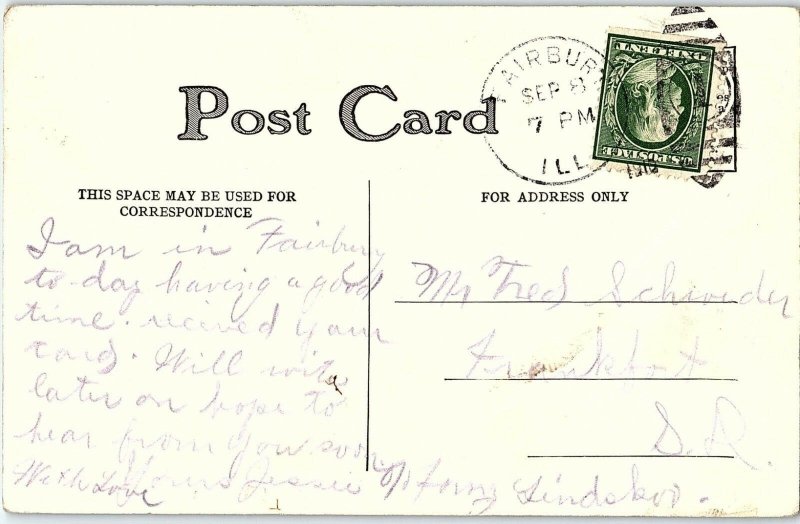 Post Card
FAIRBURY
SEP 8
7 PM
ILL.
1910
THIS SPACE MAY BE USED FOR
CORRESPONDENCE
FOR ADDRESS ONLY
I am in Fairbury
to-day having a good
time. recived your
card. Will wite
later on hope to
hear from you soon
With Love Yours Jessie
Mr Fred Schroeder
Frankfort
S.D.